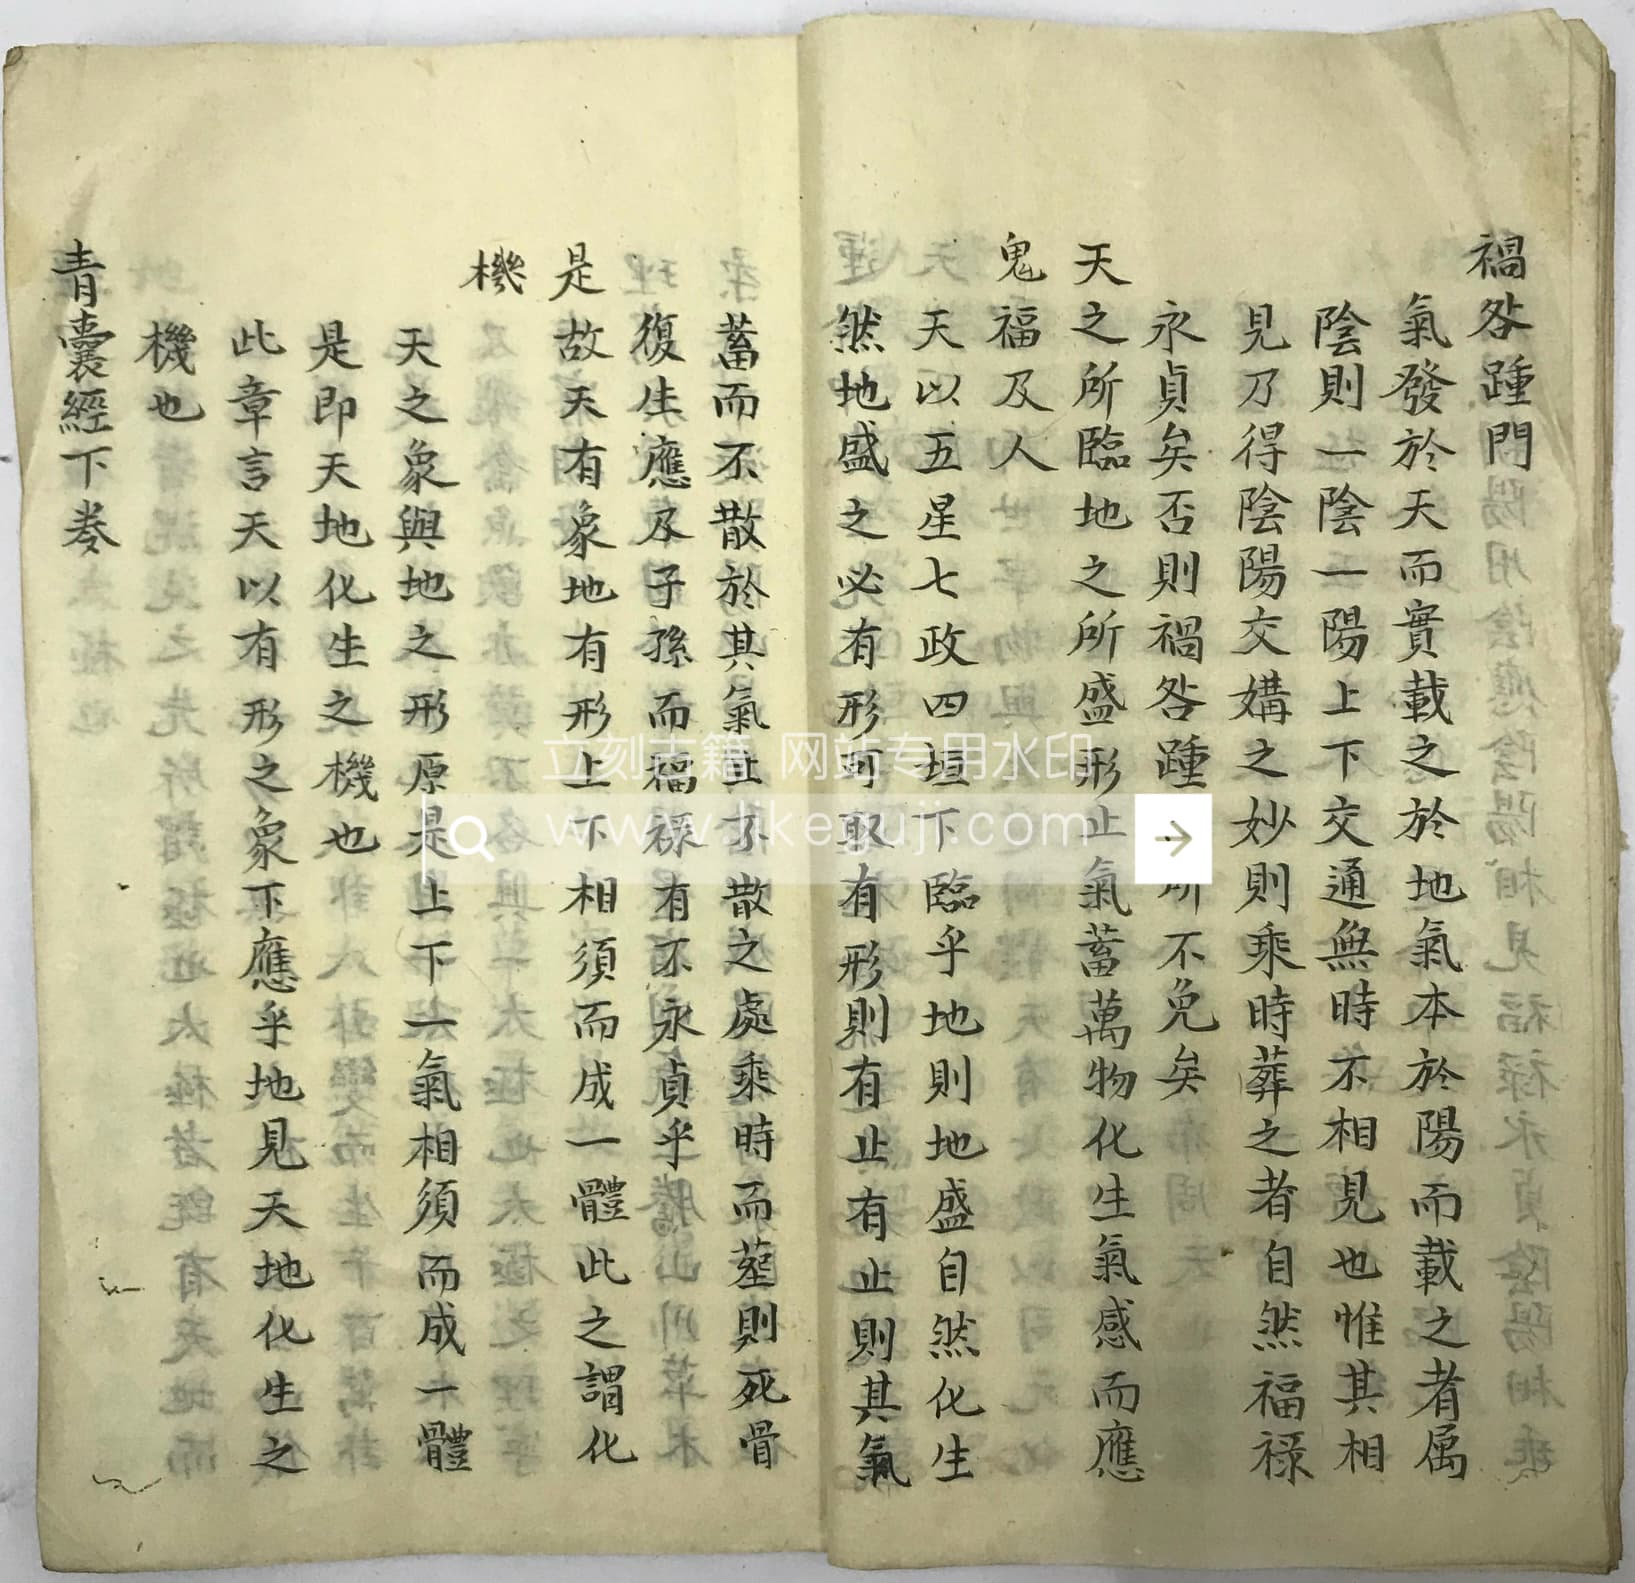 禍咎踵門
氣發於天而實載之於地氣本於陽而載之者属
陰則一陰一陽上下交通無時不相見也惟其相
見乃得陰陽交媾之妙則乘時葬之者自然福祿
永貞矣否則禍咎踵所不免矣
天之所臨地之所盛形止氣蓄萬物化生氣感而應
鬼福及人
天以五星七政四垣下臨乎地則地盛自然化生
然地盛之必有形可取有形則有止有止則其氣
蓄而不散於其氣止不散之處乘時而葬則死骨
復生應及子孫而福祿有不永貞乎
是故天有象地有形上下相須而成一體此之謂化
機
天之象與地之形原是上下一氣相須而成一體
是即天地化生之機也
此章言天以有形之象下應乎地見天地化生之
機也
青囊經下卷
立刻古籍 网站专用水印
www.likeguji.com